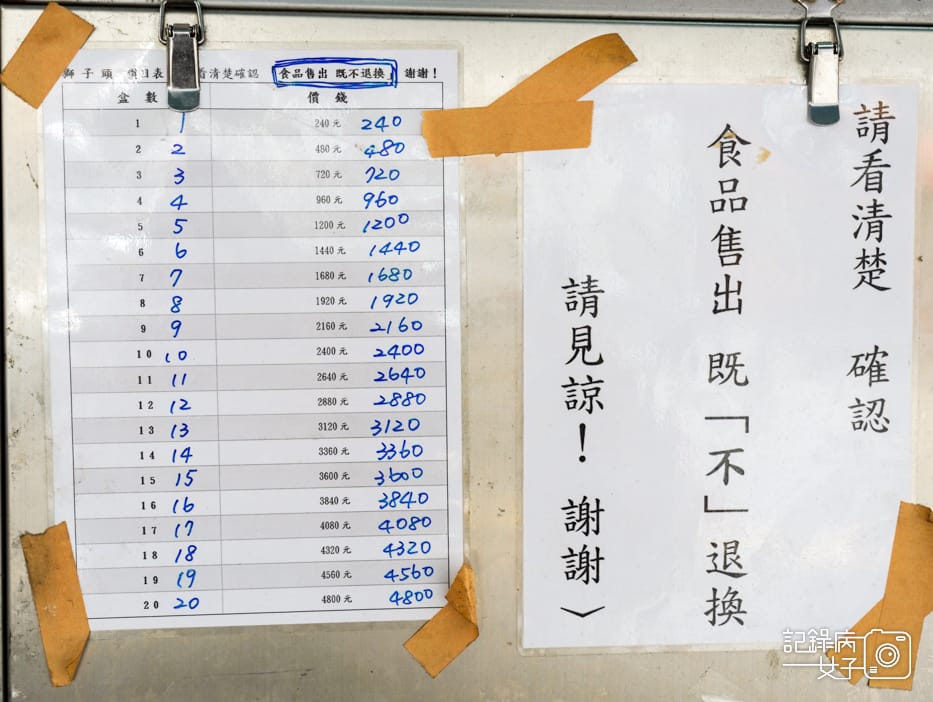 獅子頭 價目表 看清楚確認 食品售出 既不退換, 謝謝!
盒數 價錢
1 1 240元 240
2 2 480元 480
3 3 720元 720
4 4 960元 960
5 5 1200元 1200
6 6 1440元 1440
7 7 1680元 1680
8 8 1920元 1920
9 9 2160元 2160
10 10 2400元 2400
11 11 2640元 2640
12 12 2880元 2880
13 13 3120元 3120
14 14 3360元 3360
15 15 3600元 3600
16 16 3840元 3840
17 17 4080元 4080
18 18 4320元 4320
19 19 4560元 4560
20 20 4800元 4800
請看清楚 確認
食品售出 既「不」退換
請見諒! 謝謝~
記錄病
女子